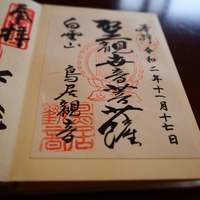 奉拝 令和二年十一月十七日
聖観世音菩薩
白雲山 鳥居観音